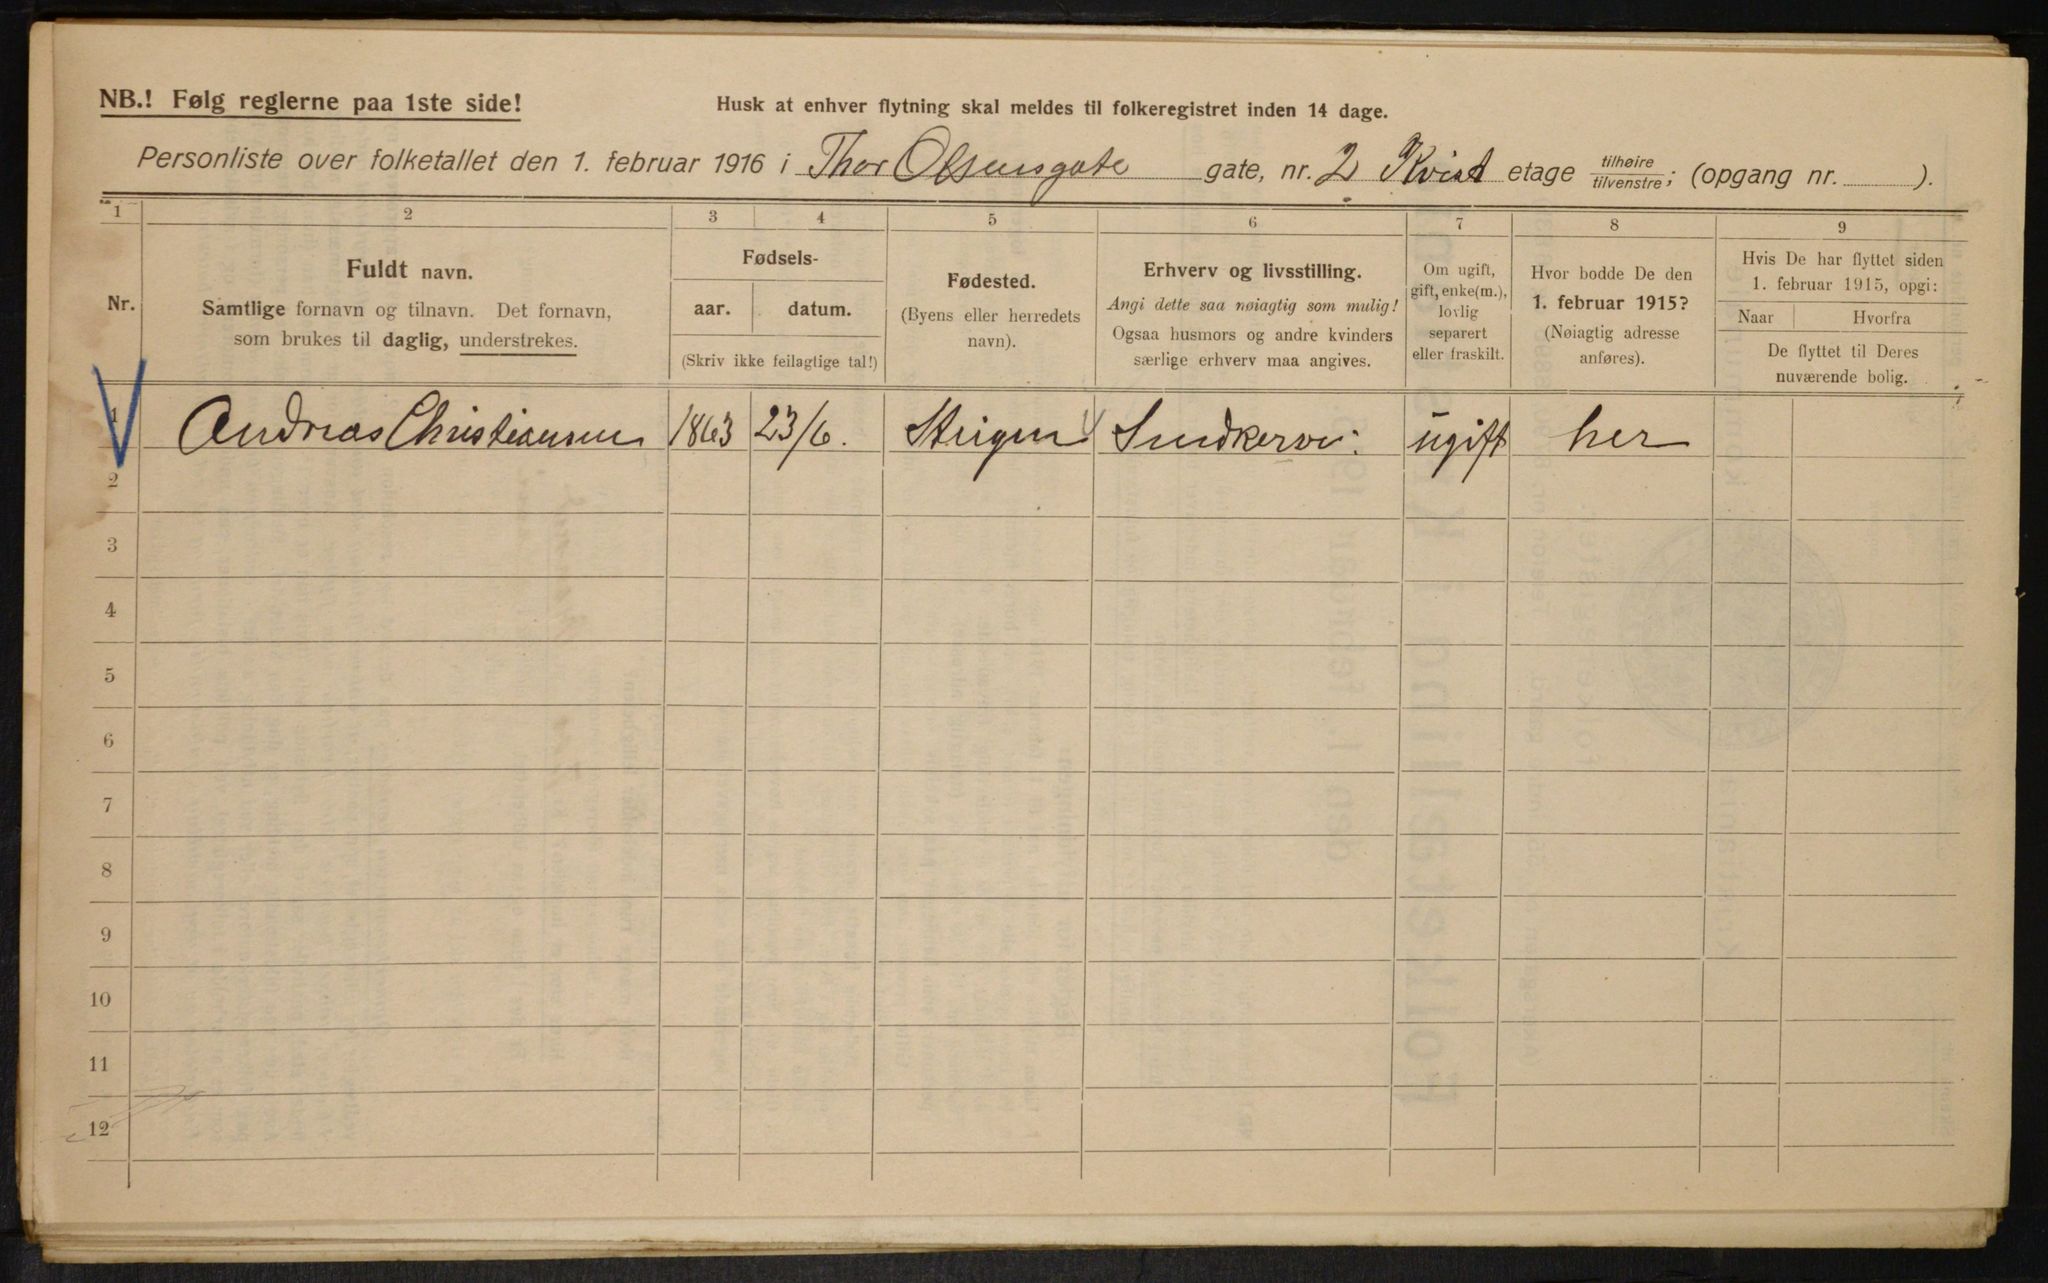 NB.! Følg reglerne paa 1ste side!
Husk at enhver flytning skal meldes til folkeregistret inden 14 dage.
Personliste over folketallet den 1. februar 1916 i Thor Olsensgate gate, nr. 2 Kvist etage tilhøire/tilvenstre; (opgang nr. ).
1 2 3 4 5 6 7 8 9
Nr.
Fuldt navn.
Samtlige fornavn og tilnavn. Det fornavn,
som brukes til daglig, understrekes.
Fødsels-
aar. datum.
(Skriv ikke feilagtige tal!)
Fødested.
(Byens eller herredets
navn).
Erhverv og livsstilling.
Angi dette saa nøiagtig som mulig!
Ogsaa husmors og andre kvinders
særlige erhverv maa angives.
Om ugift,
gift, enke(m.),
lovlig
separert
eller fraskilt.
Hvor bodde De den
1. februar 1915?
(Nøiagtig adresse
anføres).
Hvis De har flyttet siden
1. februar 1915, opgi:
Naar Hvorfra
De flyttet til Deres
nuværende bolig.
1 Andreas Christiansen 1863 23/6. ugift her
2
3
4
5
6
7
8
9
10
11
12